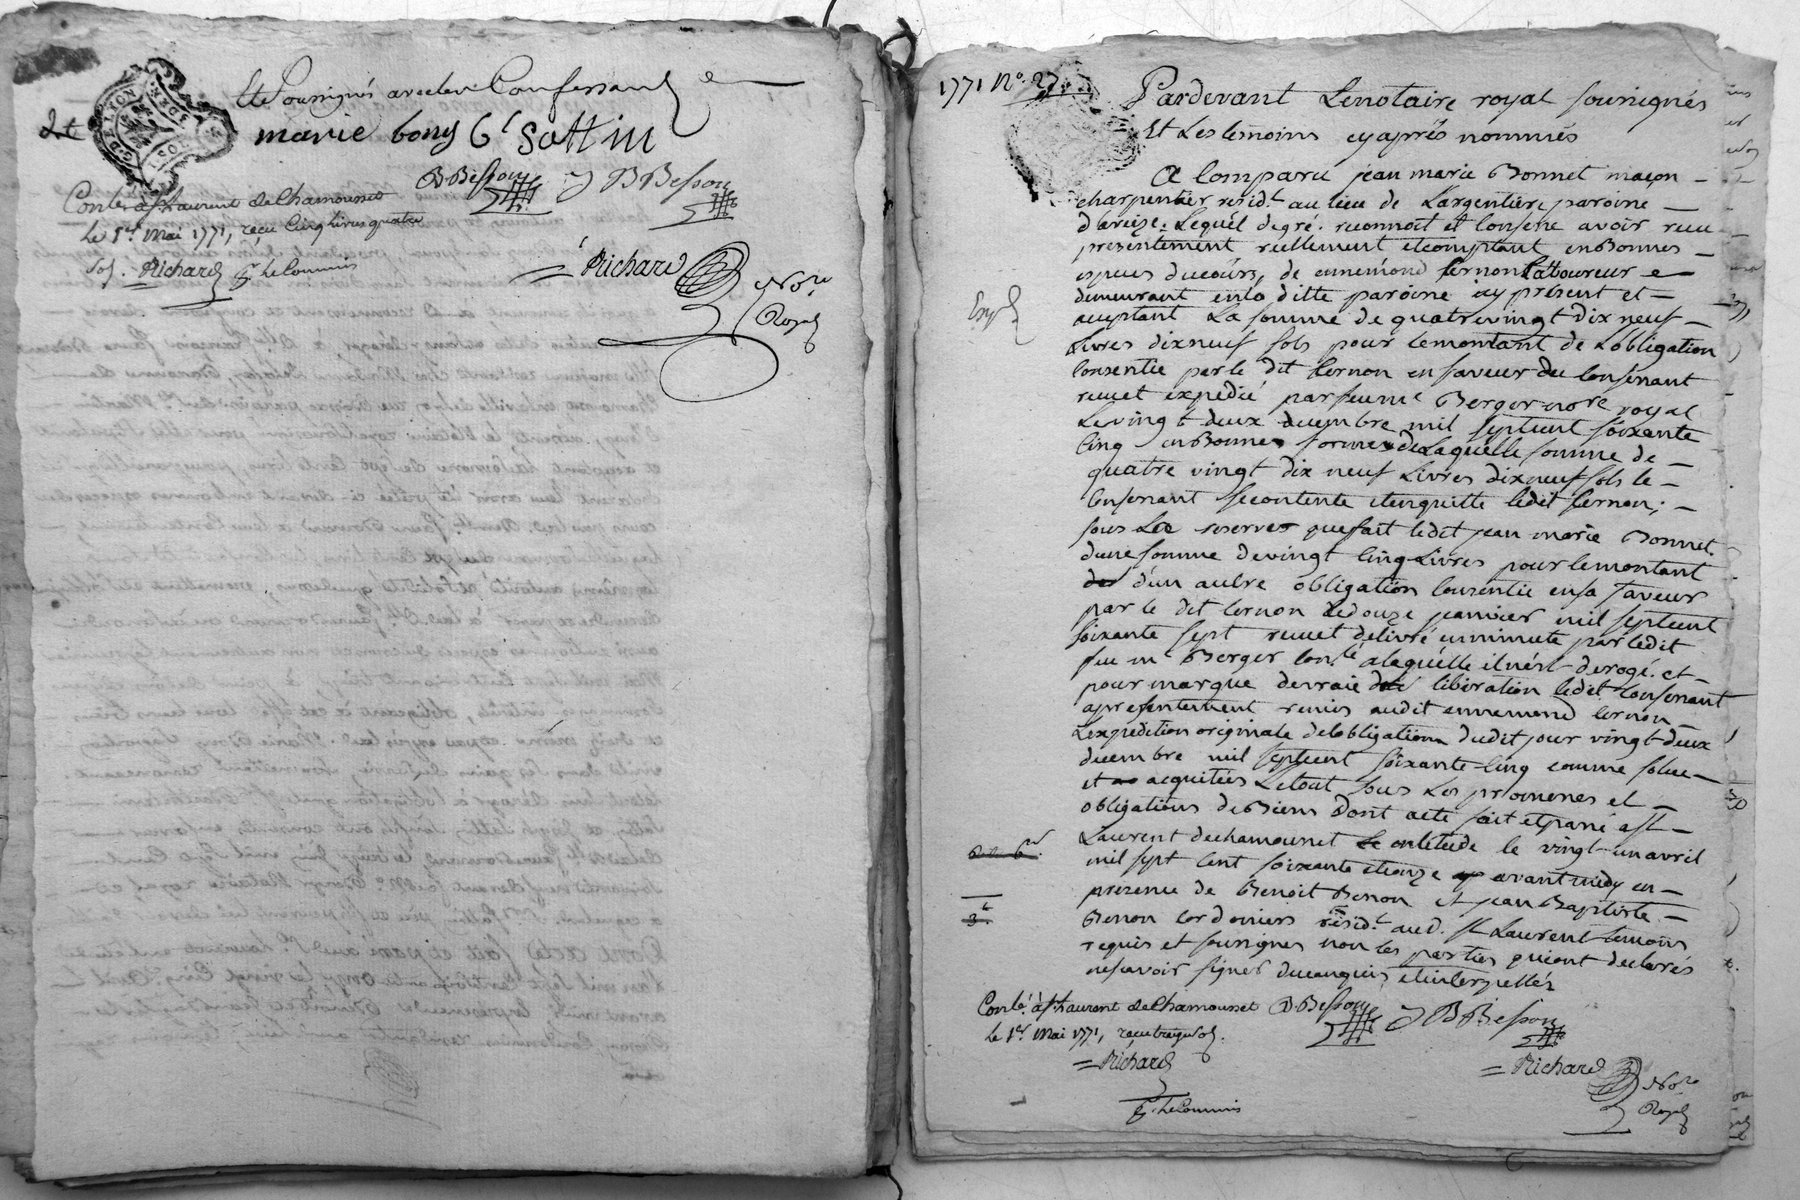 Et Soussignés avec les Confessant
2t
marie bony b.t Sottin
B Besson J B Besson
Conté à St Laurent de Chamousset
le 1er Mai 1771, reçu Cinq livres quatre
sol. Richard
Richard No.re
Royal
1771 N.o 27.
Pardevant Le notaire royal sousignés
Et Les témoins cy après nommés
A Comparu jean marie Bonnet maçon
charpentier résid.t au lieu de Largentière paroisse
d'aveize. Lequél de gré reconnoit et Confesse avoir reçu
présentement réellement et comptant en Bonnes
espèces du cours, de ennemond Cernon Laboureur
demeurant en la ditte paroisse icy présent et
Exp.é
acceptant La somme de quatre vingt dix neuf
Livres dix neuf sols pour le montant de Lobligation
Consentie par le dit Cernon en faveur du Confessant
reçue et expédié par feu me Berger nore royal
Le vingt deux décembre mil sept cent soixante
Cinq en Bonnes formes de Laquelle somme de
quatre vingt dix neuf Livres dix neuf sols le
Confessant se contente et en quitte ledit Cernon;
sous Les reserves que fait ledit jean marie Bonnet
dune somme de vingt Cinq Livres pour le montant
d'un autre obligation Consentie en sa faveur
par le dit Cernon Le douze janvier mil sept cent
soixante sept reçue et délivré en minute par ledit
feu me Berger Con.lé a laquélle il nést dérogé. et
pour marque de vraie libération ledit Confessant
a présentement remis audit ennemond Cernon
Lexpédition originale de lobligation dudit jour vingt deux
décembre mil sept cent soixante Cinq comme solue
et acquitées Le tout sous Les promesses et
obligations de Biens Dont acte fait et passé a St
Laurent de chamousset en létude le vingt un avril
mil sept Cent soixante et onze avant midy en
présence de Benoit Besson et jean Baptiste
Besson Cordoniers résid.t aud. St Laurent témoins
requis et sousignés non les parties qui ont déclarés
ne savoir signer de ce enquis et interpellés
3t
Conté. à St Laurent de Chamousset B Besson J B Besson
le 1er Mai 1771, reçu treize sol.
Richard
Richard No.re
Royal